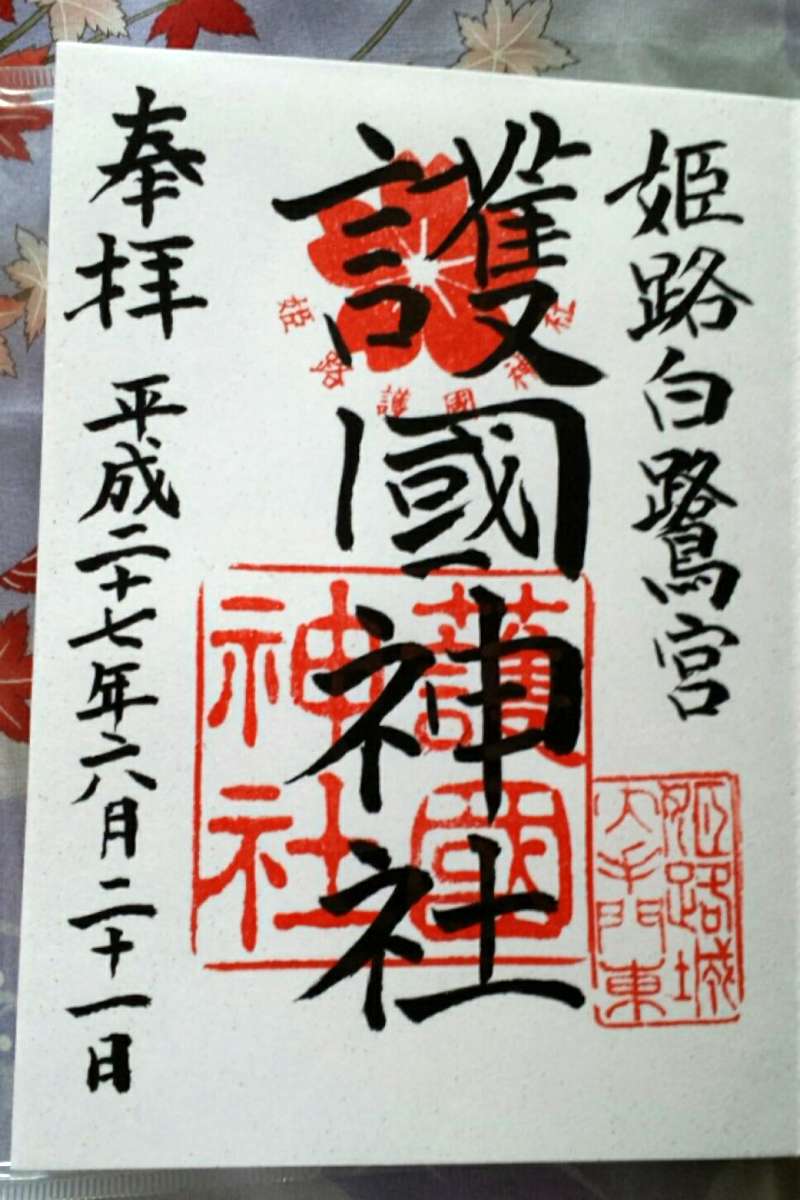 姫路白鷺宮
姫路城
大手門東
護國神社
姫路護國神社
護國
神社
奉拝
平成二十七年六月二十一日